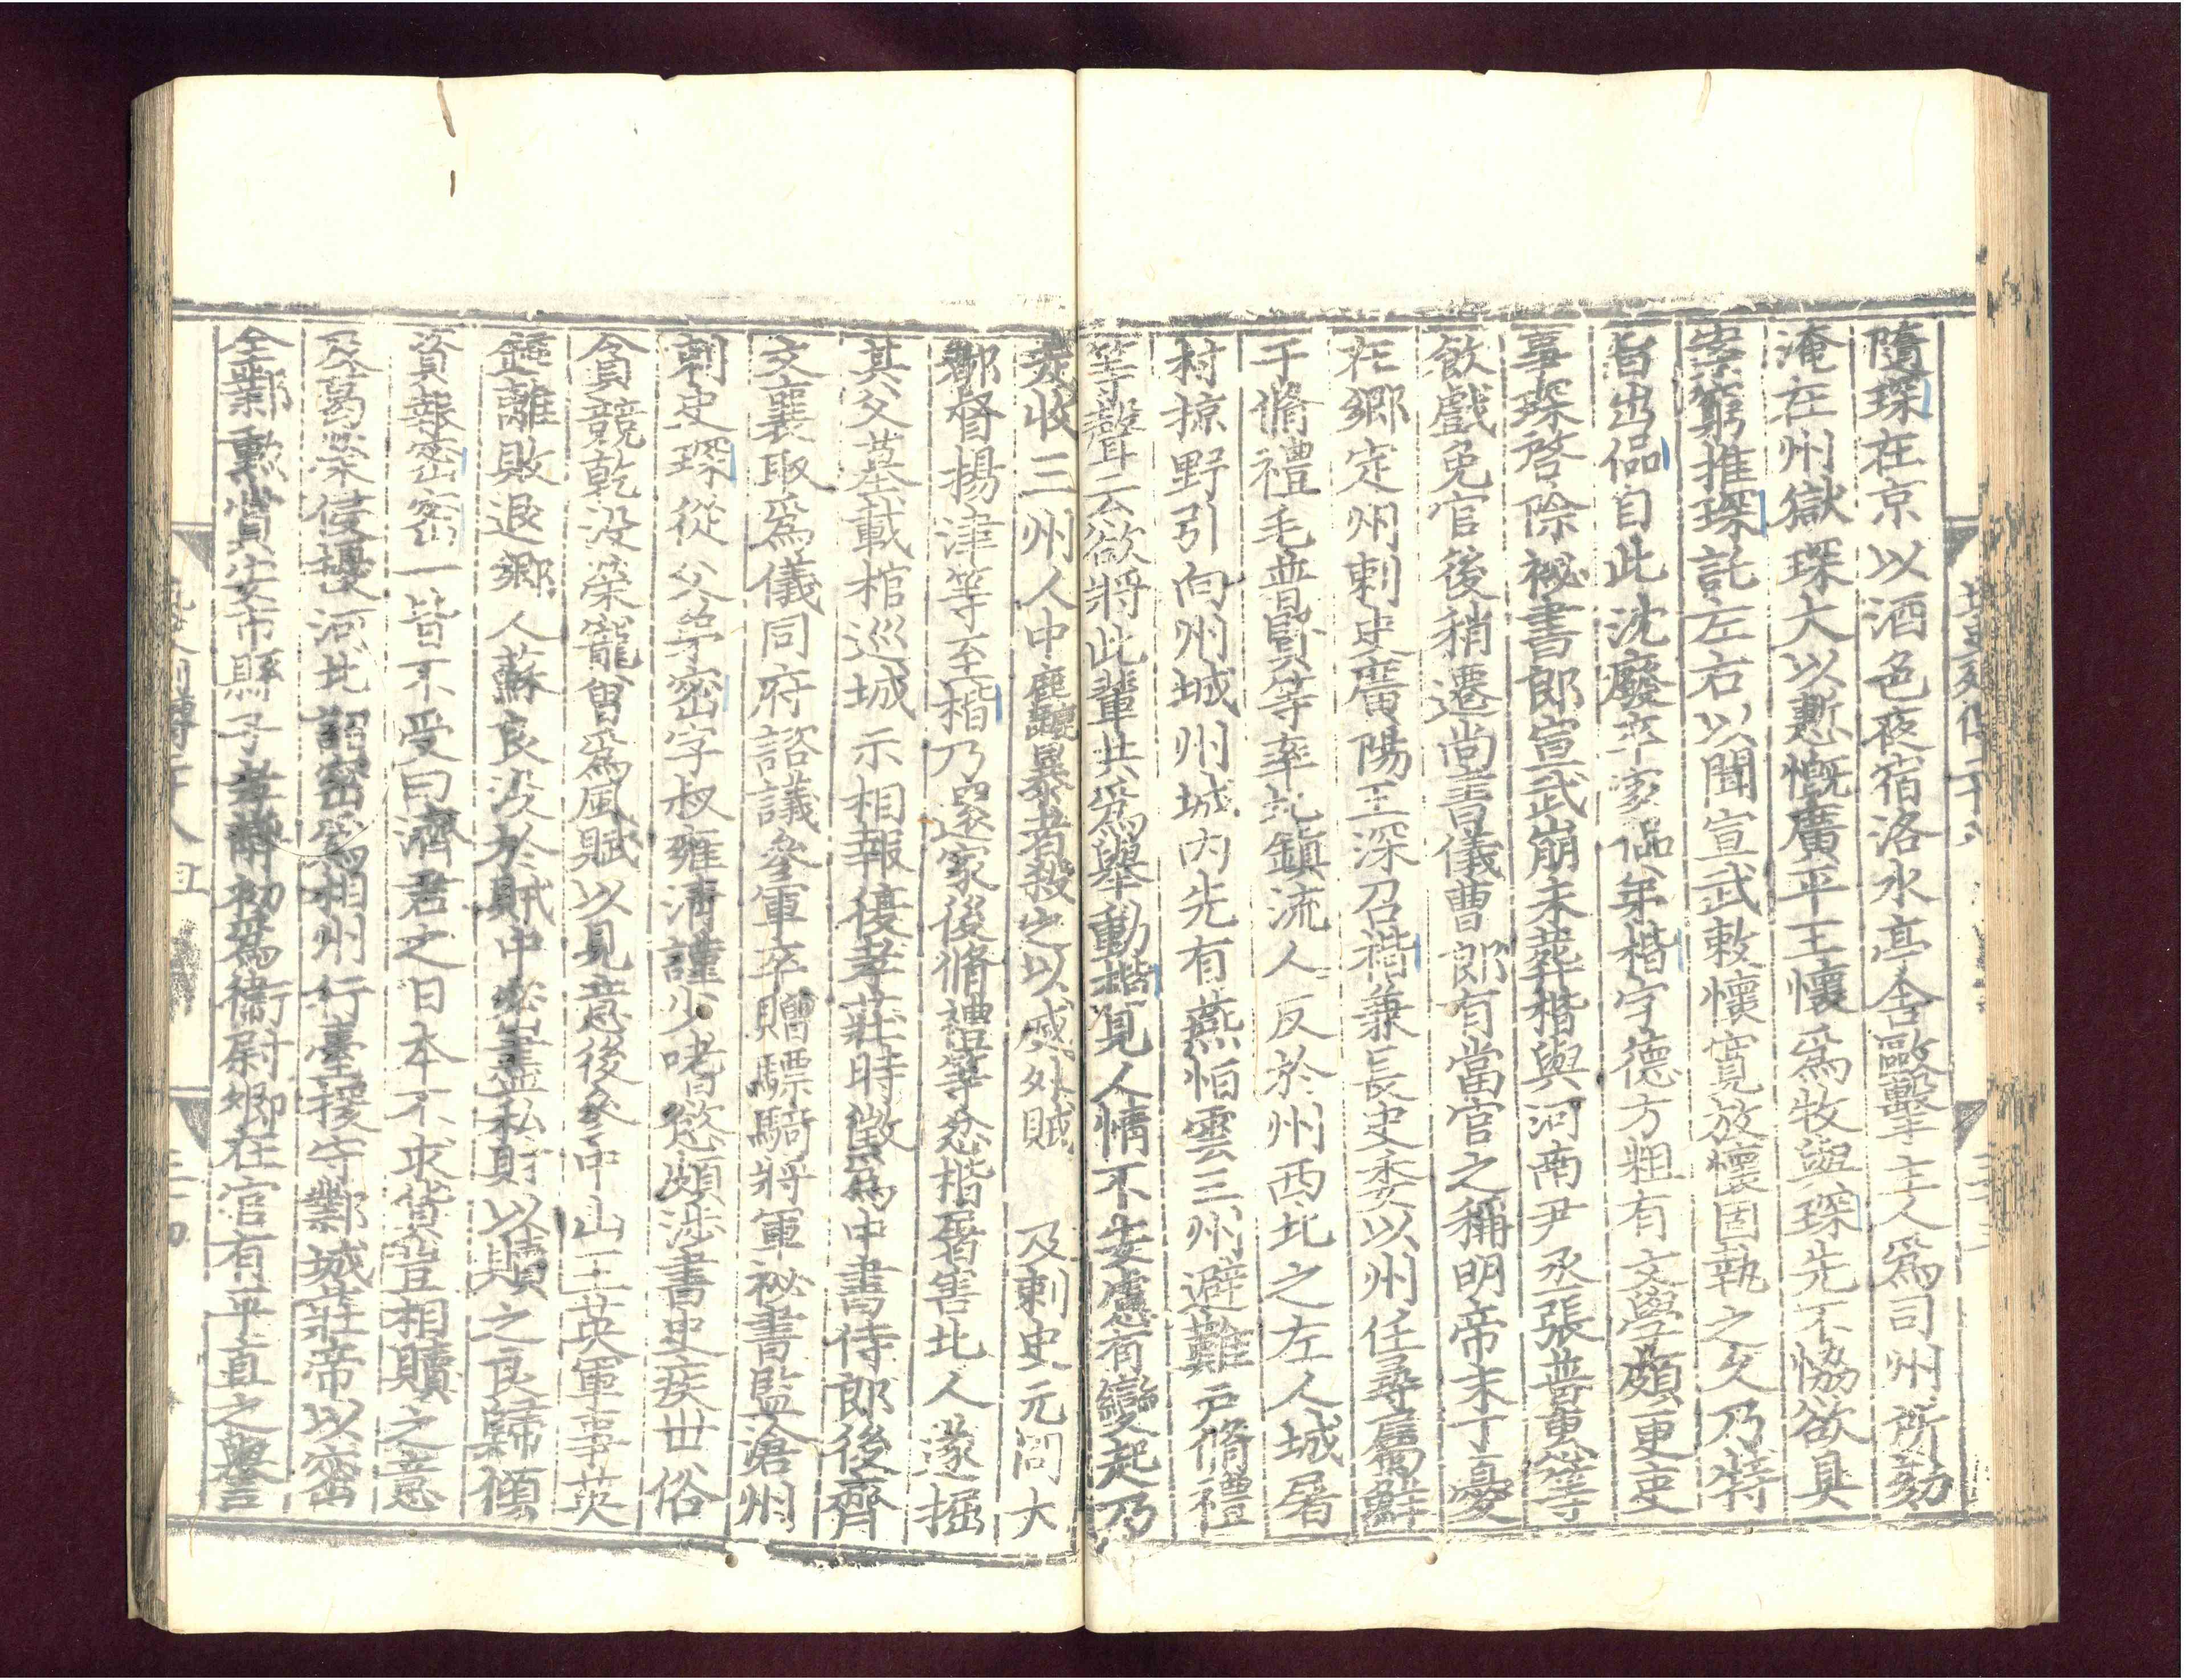 隨琛在京以酒色夜宿洛水亭舍毆擊主人爲司州所劾
淹在州獄琛大以慙慨廣平王懷爲牧與琛先不協欲具
案窮推琛託左右以聞宣武敕懷寛放懷固執之久乃特
旨出侃自此沈廢卒家侃弟楷字德方粗有文學頗更吏
事琛啓除祕書郎宣武崩未葬楷與河南尹丞張普惠等
飮戲免官後稍遷尚書儀曹郎有當官之稱明帝末丁憂
在鄉定州刺史廣陽王深召楷兼長史委以州任尋屬鮮
于脩禮毛普賢等率北鎮流人反於州西北之左人城屠
村掠野引向州城州城內先有燕恒雲三州避難戶脩禮
等聲云欲將此輩共爲舉動楷見人情不安慮有變起乃
走收三州人中麁暴者殺之以威外賊 及刺史元固大
都督揚津等至楷乃還家後脩禮等忿楷屠害北人遂掘
其父墓載棺巡城示相報復孝莊時徵爲中書侍郎後齊
文襄取爲儀同府諮議參軍卒贈驃騎將軍祕書監滄州
刺史琛從父弟密字叔雍淸謹少嗜慾頗涉書史疾世俗
貪競乾沒榮寵曾爲風賦以見意後參中山王英軍事英
鍾離敗退鄉人蘇良沒於賊中密盡私財以贖之良歸傾
資報密密一皆不受曰濟君之日本不求貨豈相贖之意
及葛榮侵擾河北詔密爲相州行臺援守鄴城莊帝以密
全鄴勳賞安市縣子孝靜初爲衞尉卿在官有平直之譽